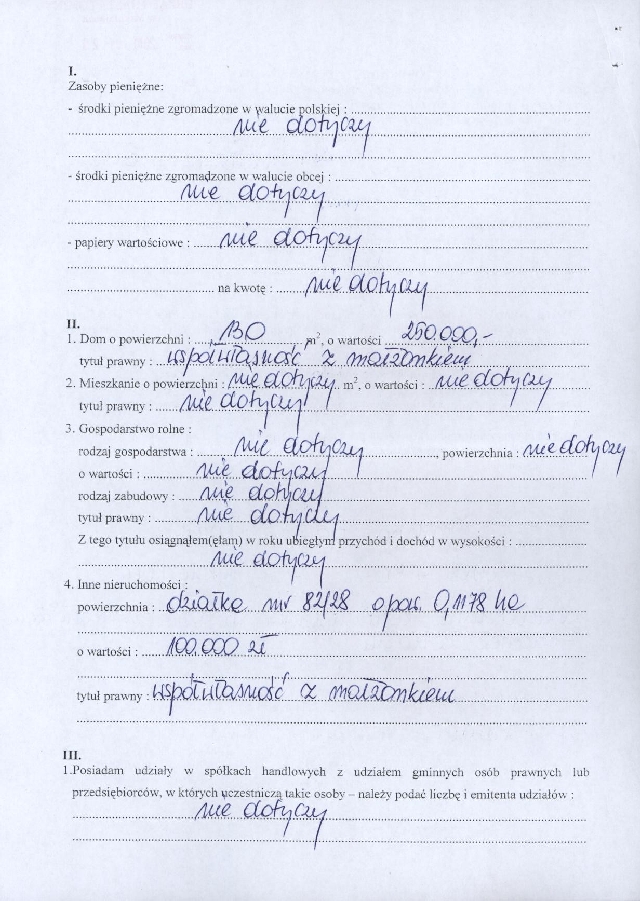 I.
Zasoby pieniężne:
- środki pieniężne zgromadzone w walucie polskiej :
nie dotyczy
- środki pieniężne zgromadzone w walucie obcej :
nie dotyczy
- papiery wartościowe : nie dotyczy
na kwotę : nie dotyczy
II.
1. Dom o powierzchni : 130 m², o wartości 250.000,-
tytuł prawny : współwłasność z małżonkiem
2. Mieszkanie o powierzchni : nie dotyczy m², o wartości : nie dotyczy
tytuł prawny : nie dotyczy
3. Gospodarstwo rolne :
rodzaj gospodarstwa : nie dotyczy, powierzchnia : nie dotyczy
o wartości : nie dotyczy
rodzaj zabudowy : nie dotyczy
tytuł prawny : nie dotyczy
Z tego tytułu osiągnąłem(ęłam) w roku ubiegłym przychód i dochód w wysokości :
nie dotyczy
4. Inne nieruchomości :
powierzchnia : działka nr 82/28 o pow. 0,1178 ha
o wartości : 100.000 zł
tytuł prawny : współwłasność z małżonkiem
III.
1.Posiadam udziały w spółkach handlowych z udziałem gminnych osób prawnych lub
przedsiębiorców, w których uczestniczą takie osoby – należy podać liczbę i emitenta udziałów :
nie dotyczy